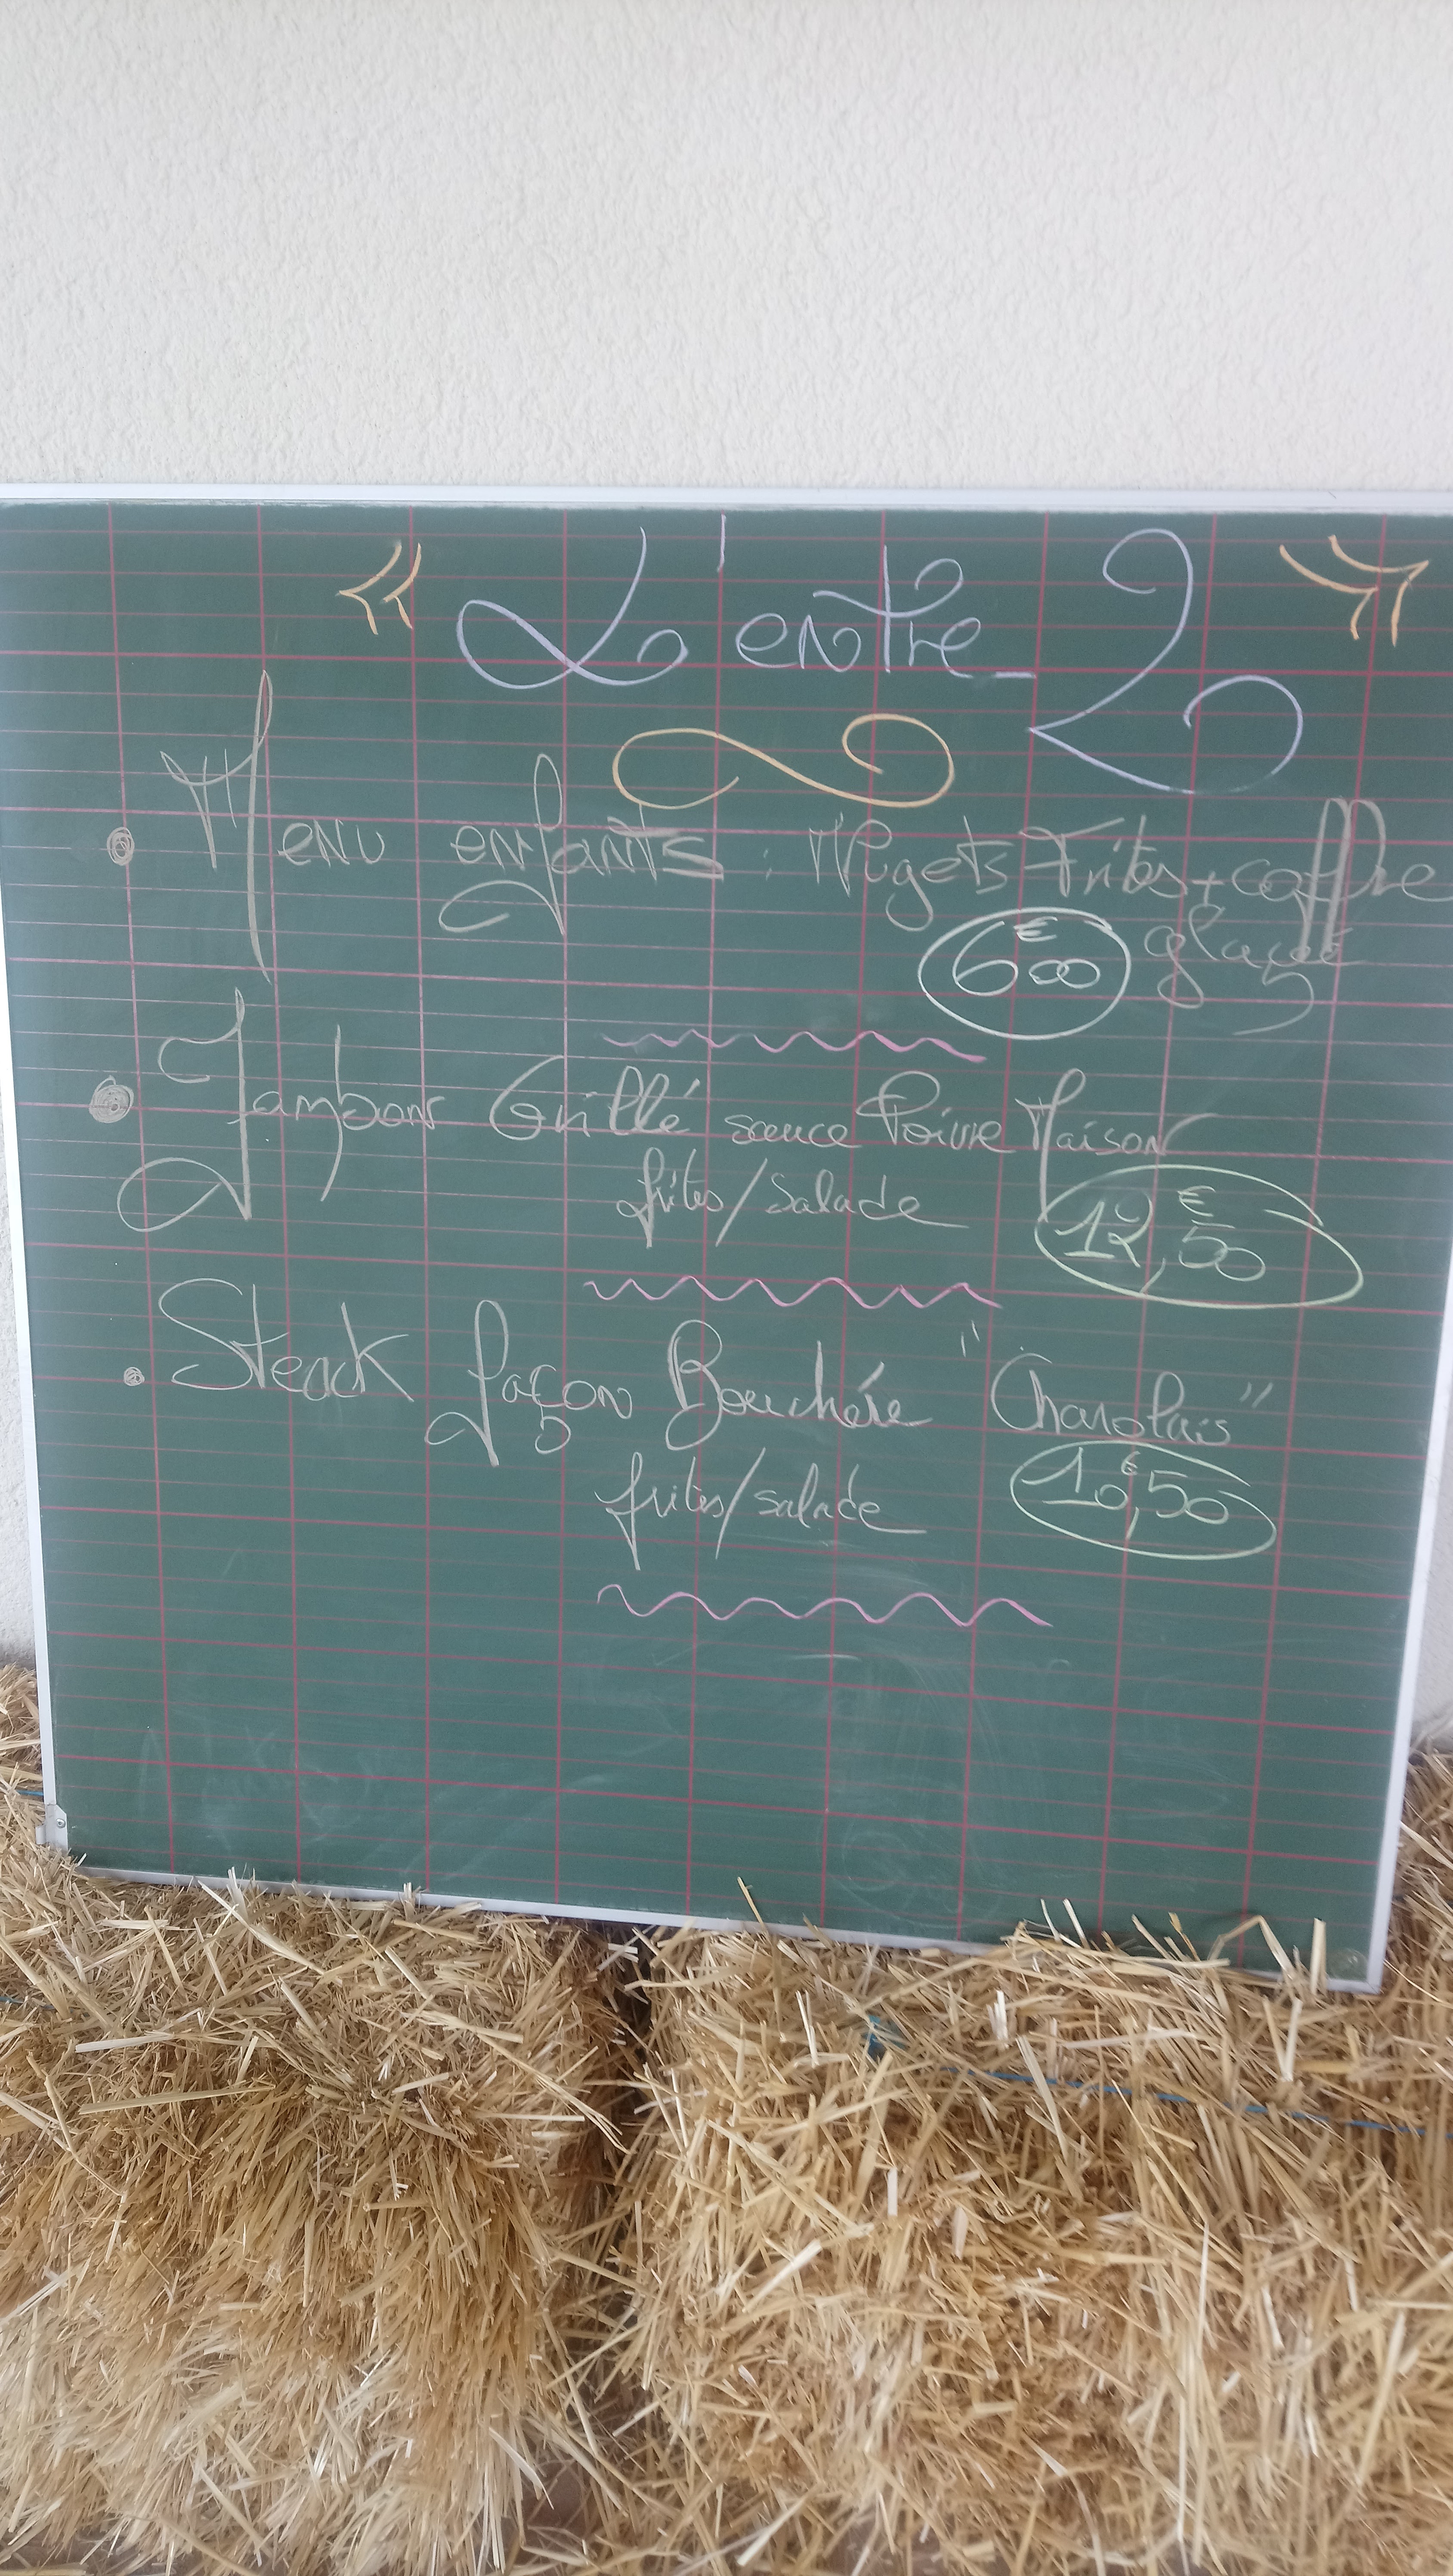 « L'entre-2 »
• Menu enfants : Nugets Frites + coffre
6€00 glacé
• Jambon Grillé sauce Poivre Maison
frites/Salade 12€,50
• Steack façon Bouchère "Charolais"
frites/salade 10€,50